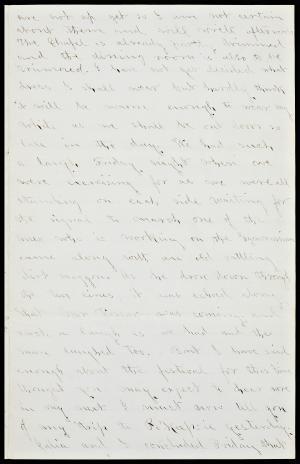 are not up yet so I am not certain
about them and will write afterwards
The Chapel is already trimmed
and the dining room is also to be
trimmed. I have not yet decided what
dress I shall wear but hardly think
it will be warm enough to wear my
white as we shall be out door so
late in the day. We had such
a laugh Friday night when we
were exercising for as we were all
standing on each side waiting for
the signal to march one of the
men who is working on the
came along with an old rattling
dirt waggon. As he drove down through
the two lines it was echoed along
that was coming and
such a laugh as we had and the
man laughed too. But I have said
enough about the festival for this time
though you may expect to hear more
in my next. I must now tell you
of my trip to yesterday.
and I concluded Friday that